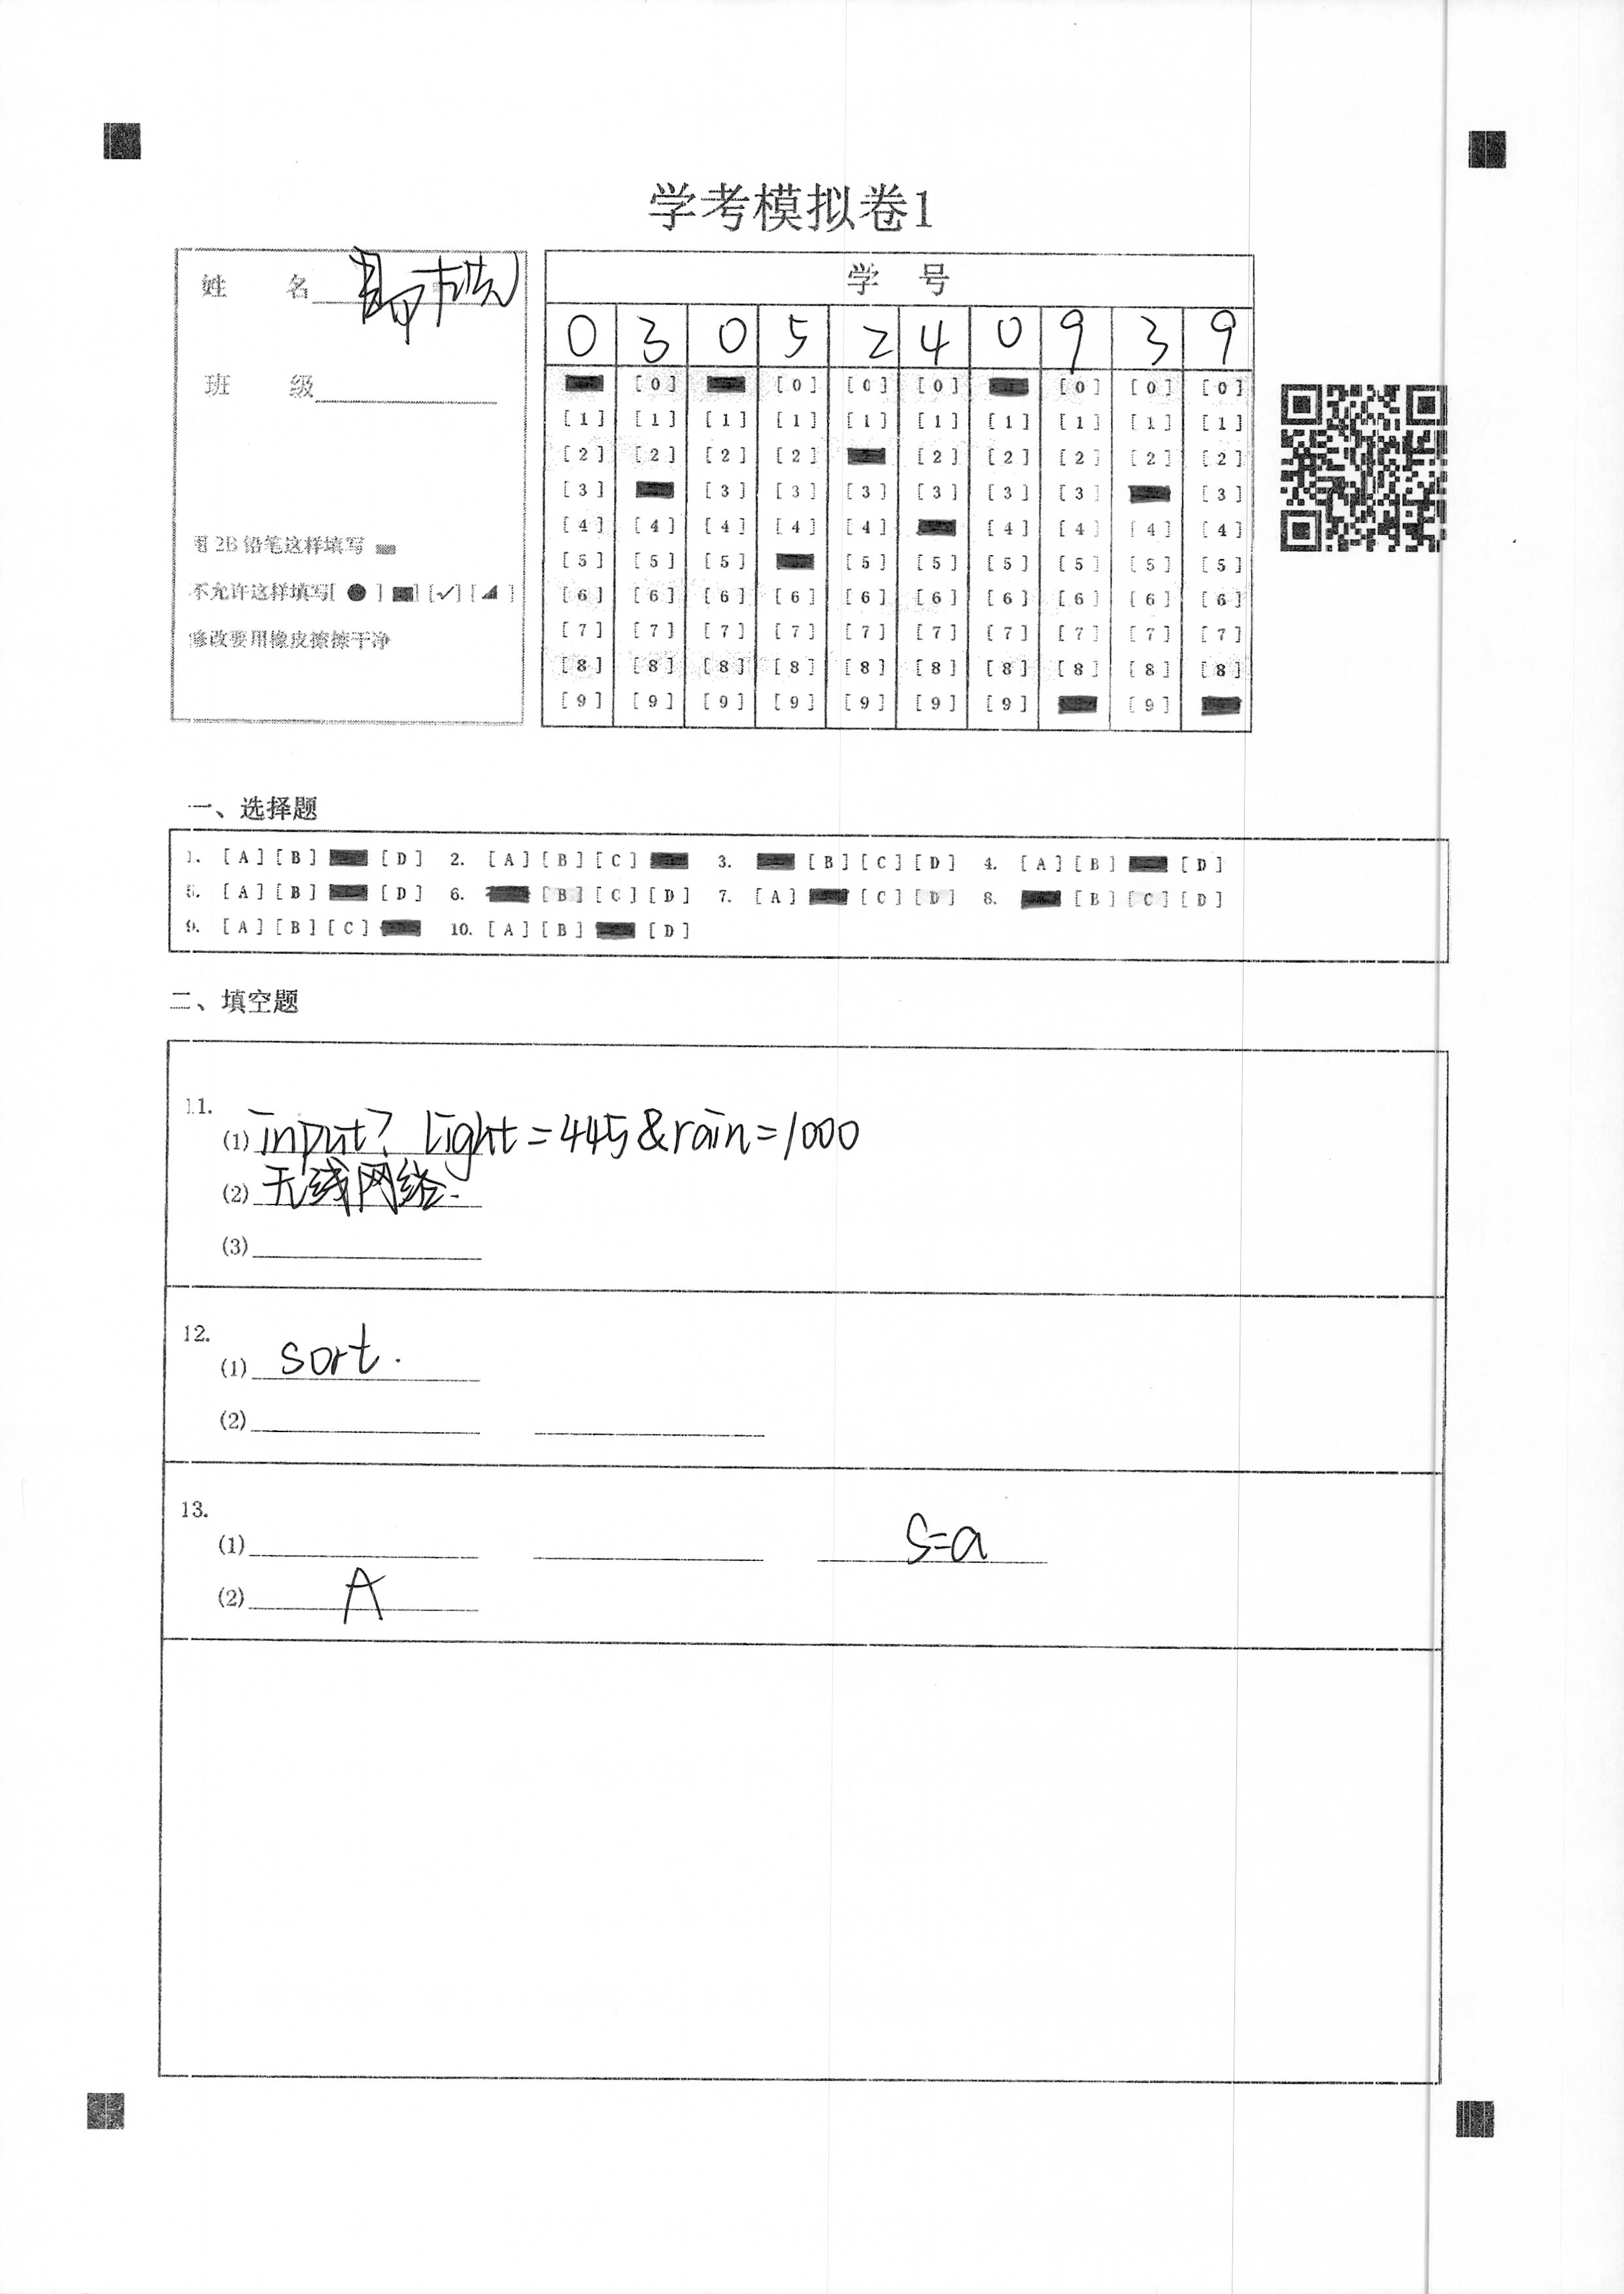 学考模拟卷1
姓 名
班 级
用 2B 铅笔这样填写
不允许这样填写[ ● ] [■] [✓] [◢ ]
修改要用橡皮擦擦干净
学 号
0 3 0 5 2 4 0 9 3 9
[0] [0] [0] [0] [0] [0] [0]
[1] [1] [1] [1] [1] [1] [1] [1] [1] [1]
[2] [2] [2] [2] [2] [2] [2] [2] [2]
[3] [3] [3] [3] [3] [3] [3] [3]
[4] [4] [4] [4] [4] [4] [4] [4] [4]
[5] [5] [5] [5] [5] [5] [5] [5] [5]
[6] [6] [6] [6] [6] [6] [6] [6] [6] [6]
[7] [7] [7] [7] [7] [7] [7] [7] [7] [7]
[8] [8] [8] [8] [8] [8] [8] [8] [8] [8]
[9] [9] [9] [9] [9] [9] [9] [9]
一、选择题
1. [A] [B] [D] 2. [A] [B] [C] 3. [B] [C] [D] 4. [A] [B] [D]
5. [A] [B] [D] 6. [B] [C] [D] 7. [A] [C] [D] 8. [B] [C] [D]
9. [A] [B] [C] 10. [A] [B] [D]
二、填空题
11.
(1) input? light=445&rain=1000
(2) 无线网络.
(3)
12.
(1) sort.
(2)
13.
(1) S=a
(2) A